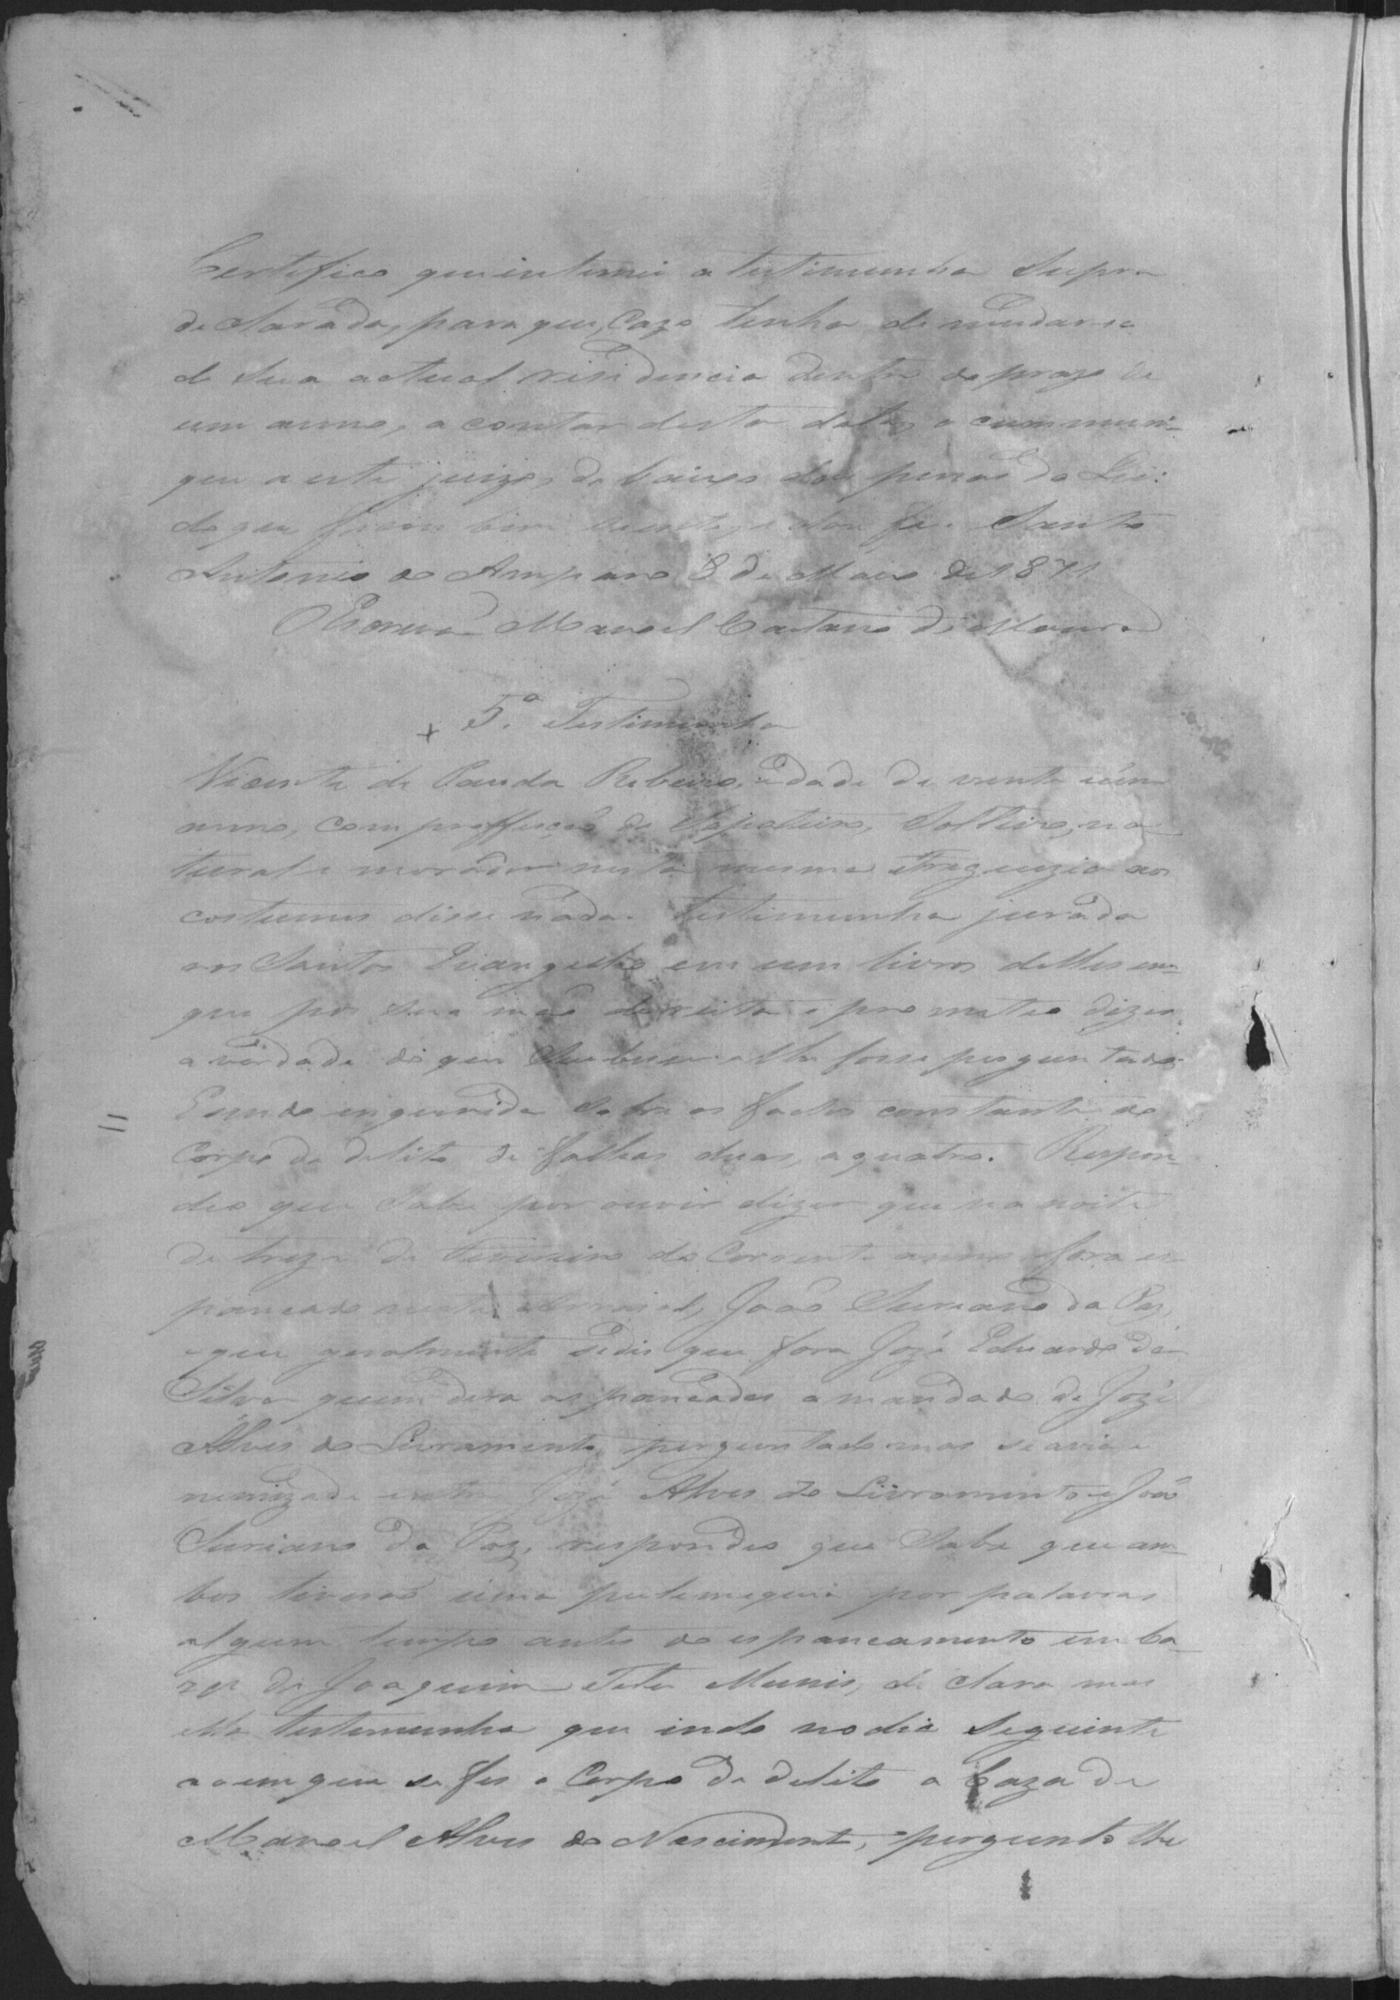 Certifico que intimei a testimunha Supra
declarada, para que, Cazo tenha de mudar se
de Sua actual residencia dentro do prazo de
um anno, a contar desta data, o communi-
que a este juizo, de baixo das penas da Lei:
do que ficou bem sciente, e dou fé. Santo
Antonio do Amparo 8 de Maio de 1871
O Escrivão Manoel Caetano de Moura
5ª Testimunha
Vicente de Paula Ribeiro, idade de vinte e um
anno, com proffissão de Sapateiro, Solteiro, na-
tural e morador nesta mesma Freguezia aos
costumes disse nada. Testimunha jurada
aos Santos Evangelhos em um livro delles em
que pos Sua mão direita e prometeo dizer
a verdade do que Soubesse e lhe fosse perguntado.
E sendo inquerida Sobre os factos constante do
Corpo de delito de folhas duas, a quatro. Respon-
deo que Sabe por ouvir dizer que na noite
de treze de Fevereiro do Corrente anno fora es-
pancado nesta, João Suriano da Paz,
e que geralmente Se dis que fora Jozé Eduardo da
Silva quem dera as pancadas a mandado de Jozé
Alves do Livramento, perguntado mas se avia i-
nemizade entre Jozé Alves do Livramento e João
Suriano da Paz, respondeo que Sabe que am-
bos tiverão uma por palavras
algum tempo antes do espancamento em Ca-
za de Joaquim Munis, declara mas
ella testemunha que indo no dia Seguinte
ao em que se fes o Corpo de delito a Caza de
Manoel Alves do Nascimento, pergunto lhe